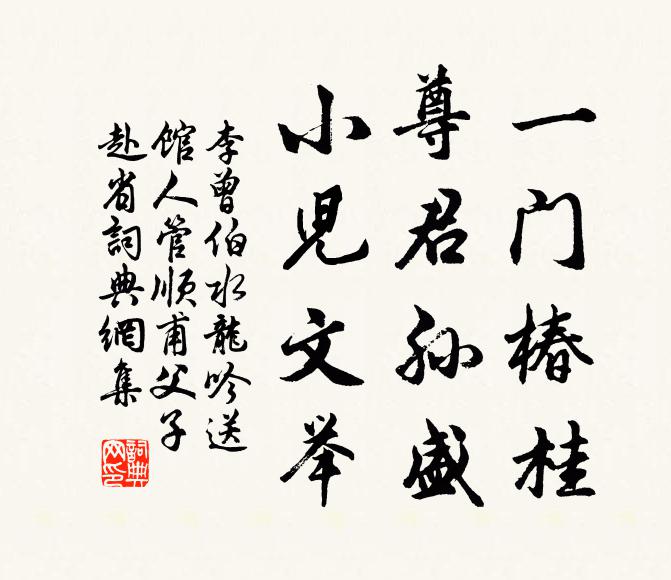 一门椿桂
尊君孙盛
小児文举
李曾伯水龍吟送
馆人管順甫父子
赴省詞典網集
詞典网印